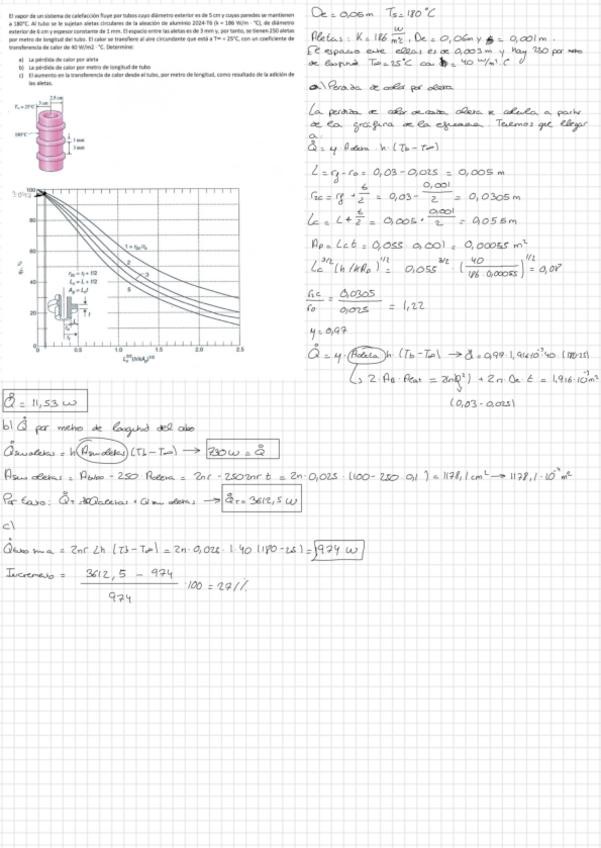 El vapor de un sistema de calefacción fluye por tubos cuyo diámetro exterior es de 5 cm y cuyas paredes se mantienen
a 180°C. Al tubo se le sujetan aletas circulares de la aleación de aluminio 2024-T6 (k = 186 W/m · °C), de diámetro
exterior de 6 cm y espesor constante de 1 mm. El espacio entre las aletas es de 3 mm y, por tanto, se tienen 250 aletas
por metro de longitud del tubo. El calor se transfiere al aire circundante que está a T∞ = 25°C, con un coeficiente de
transferencia de calor de 40 W/m2 · °C. Determine:
a) La pérdida de calor por aleta
b) La pérdida de calor por metro de longitud de tubo
c) El aumento en la transferencia de calor desde el tubo, por metro de longitud, como resultado de la adición de
las aletas.
T∞ = 25°C
2.5 cm
3 cm
180°C
1 mm
3 mm
100
80
60
40
20
0
0.5
1.0
1.5
2.0
2.5
1 = r2c/r1
2
3
5
r2c = r2 + t/2
Lc = L + t/2
Ap = Lct
De = 0,05m Ts = 180°C
Aletas: K = 186 W/m°C, De = 0,06m y t = 0,001m.
El espacio entre ellas es de 0,003m y hay 250 por metro
de longitud T∞ = 25°C con h = 40 W/m².C
a) Perdida de calor por aleta
La perdida de calor de cada aleta se calcula a partir
de la gráfica de la eficiencia. Tenemos que llegar
a:
Q̇ = η · Aaleta · h · (Tb - T∞)
L = rf - r0 = 0,03 - 0,025 = 0,005m
r2c = rf + t/2 = 0,03 - 0,001/2 = 0,0305m
Lc = L + t/2 = 0,005 + 0,001/2 = 0,055m
Ap = Lc t = 0,055 · 0,001 = 0,00055 m²
Lc^3/2 (h/kAp)^1/2 = 0,055^3/2 · (40 / 186 · 0,00055)^1/2 =
r2c/r0 = 0,0305/0,025 = 1,22
η = 0,97
Q̇ = η · Aaleta h · (Tb - T∞) → Q̇ = 0,97 · 1,916·10⁻³ · 40 · (180-25)
= 1,916·10⁻³ m²
(0,03 - 0,025)
Q̇ = 11,53 W
b) Q̇ por metro de longitud del tubo
Q̇sin aletas = h Asin aletas (Tb - T∞) → 730 W = Q̇
Asin aletas = Atubo - 250 Aaletas = 2πr - 250 2πr t = 2π · 0,025 · (100 - 250 · 0,1) = 1178,1 cm² → 1178,1 · 10⁻⁴ m²
Por tanto: Q̇T = Q̇aletas + Qsin aletas → Q̇T = 3612,5 W
c)
= 2πr Lh (Tb - T∞) = 2π · 0,025 · 1 · 40 (180 - 25) = 974 W
Incremento = 3612,5 - 974 / 974 · 100 = 271%